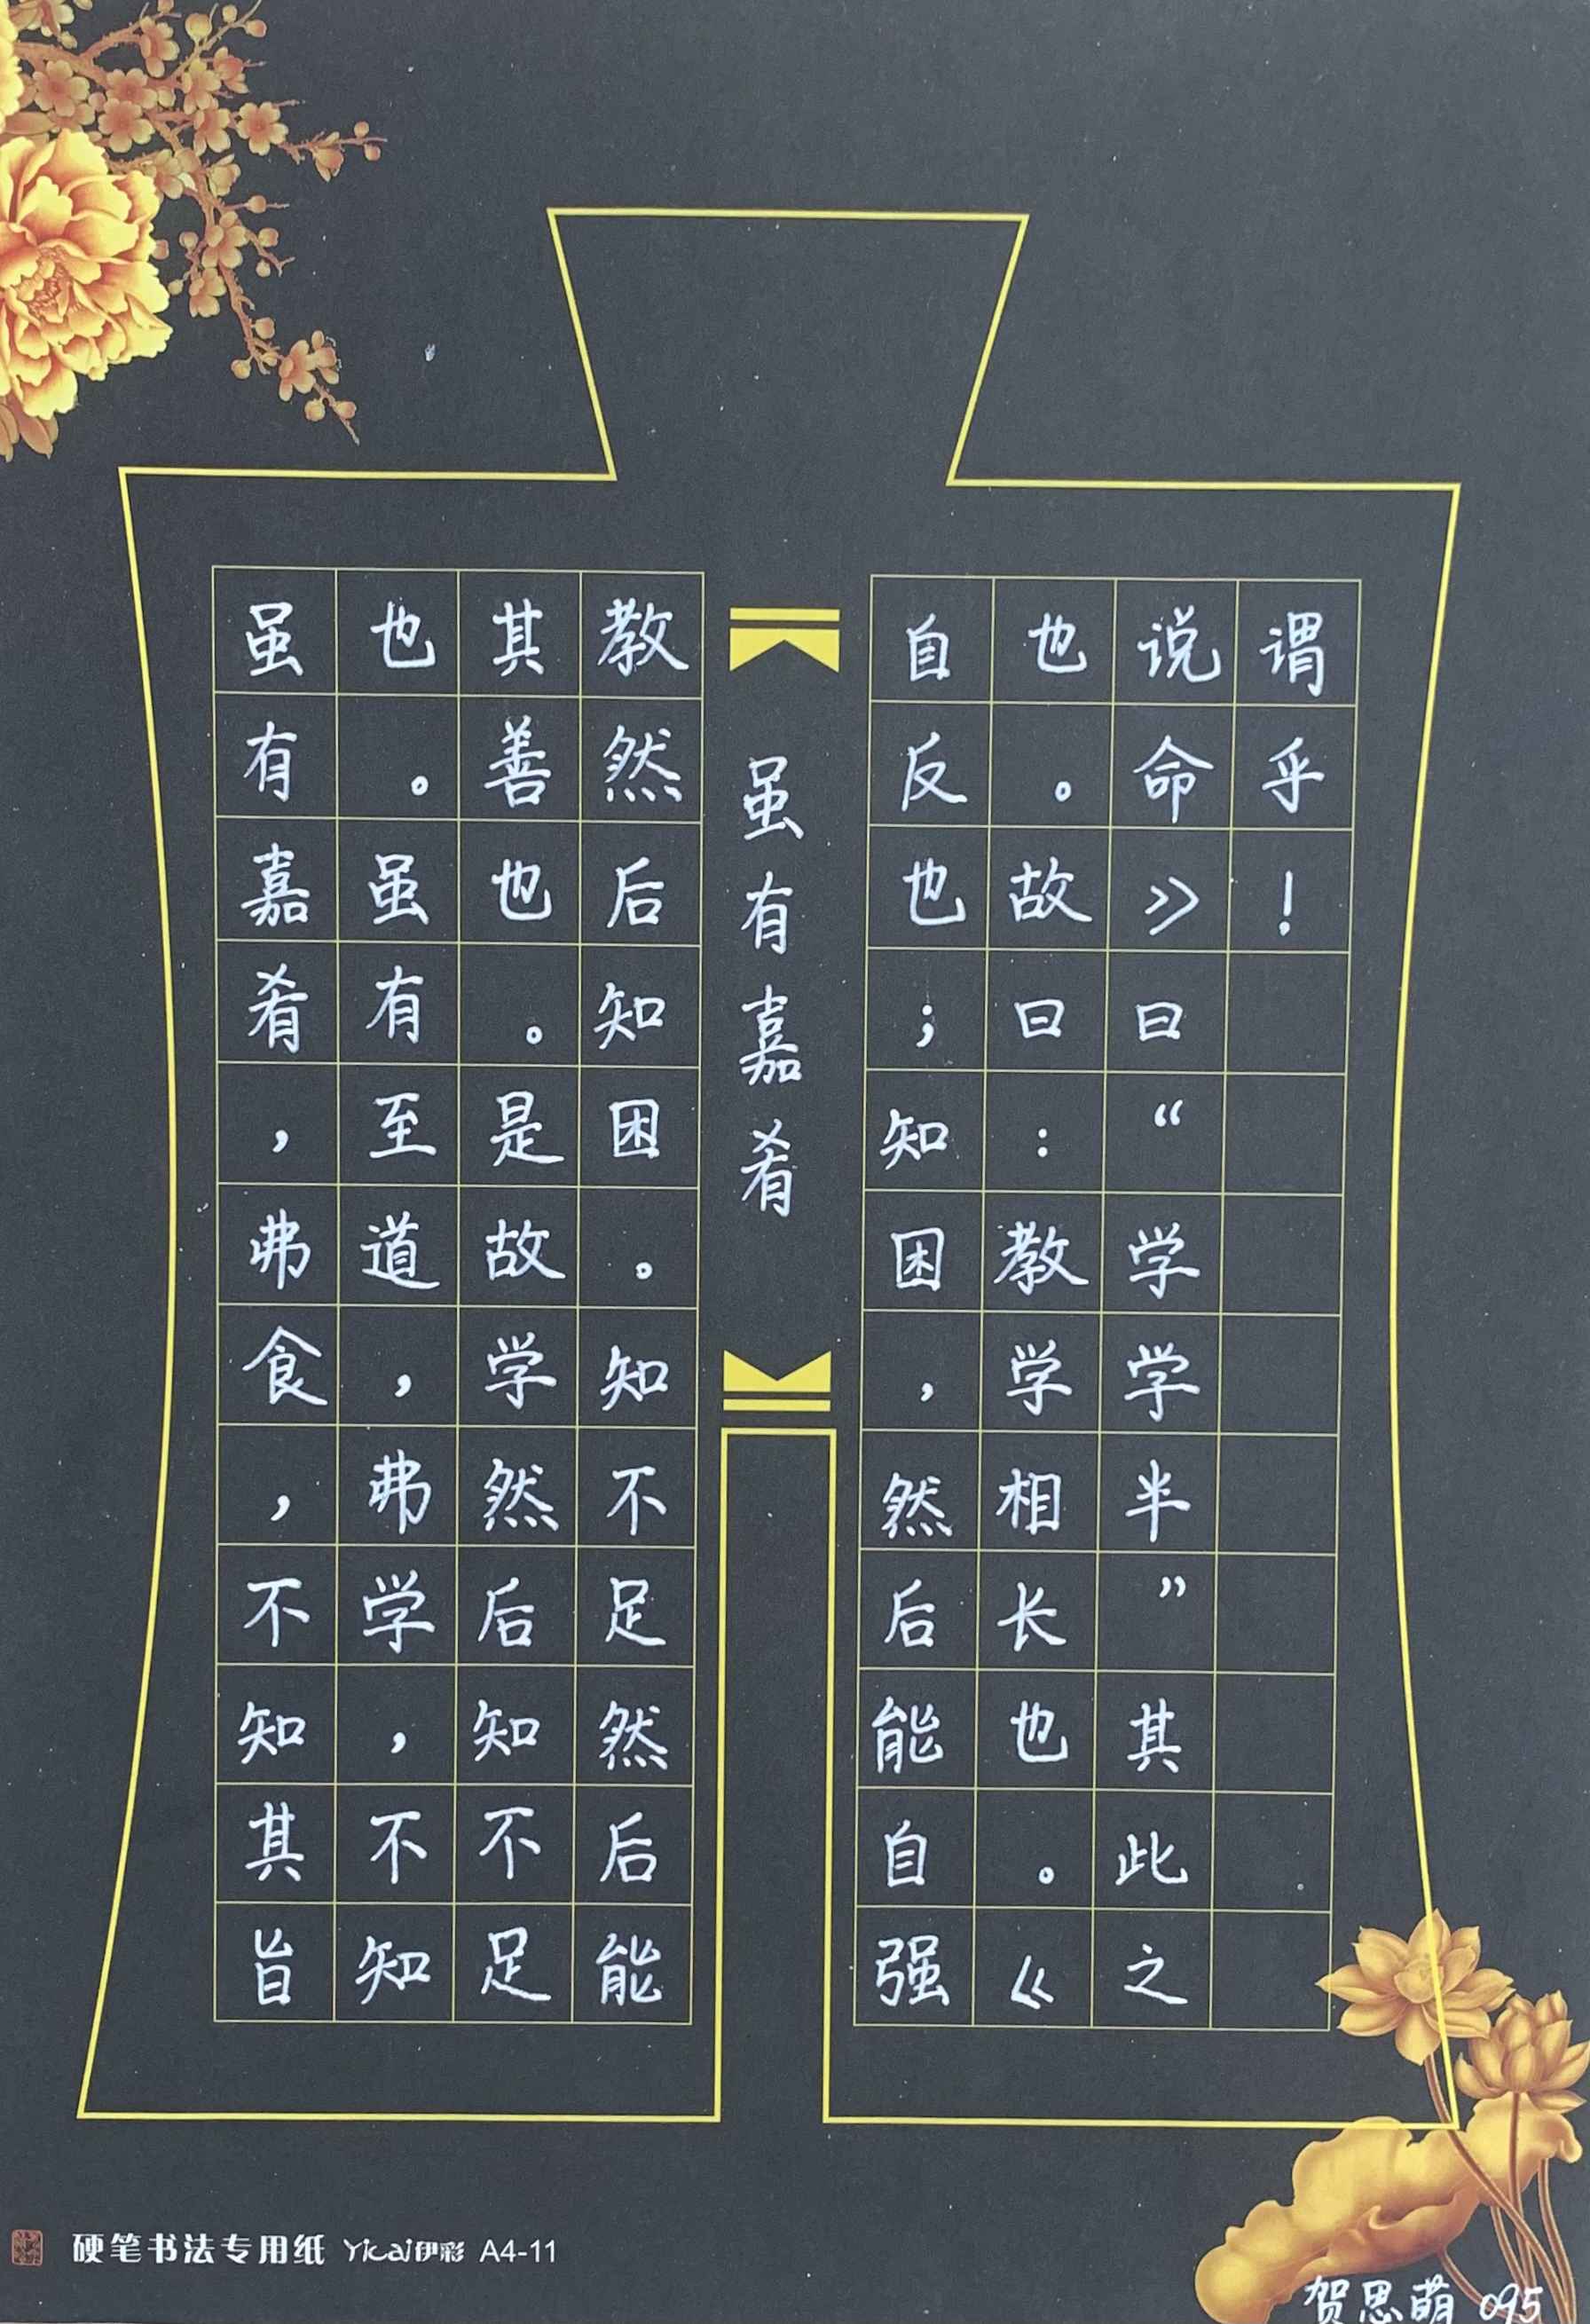 虽有嘉肴，弗食，不知其旨
也。虽有至道，弗学，不知
其善也。是故学然后知不足
教然后知困。知不足然后能
虽有嘉肴
自反也；知困，然后能自强
也。故曰：教学相长也。《
说命》曰“学学半”其此之
谓乎！
硬笔书法专用纸 Yicai伊彩 A4-11
贺思萌 095